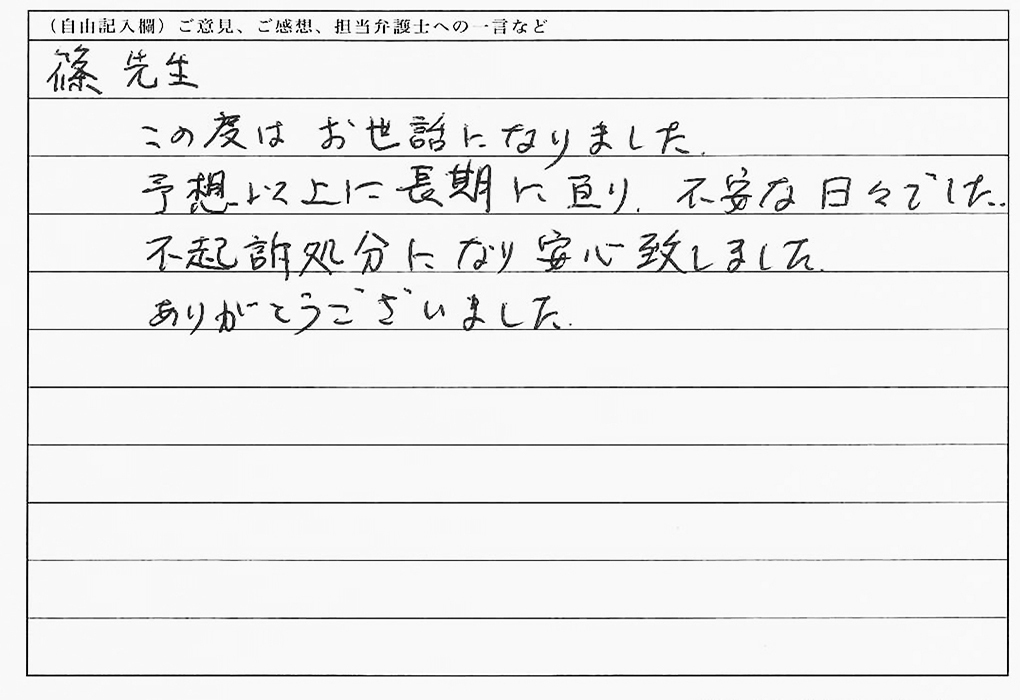 (自由記入欄)ご意見、ご感想、担当弁護士への一言など
篠 先生
この度は お世話になりました.
予想以上に長期に亘り、不安な日々でした.
不起訴処分になり安心致しました.
ありがとうございました.